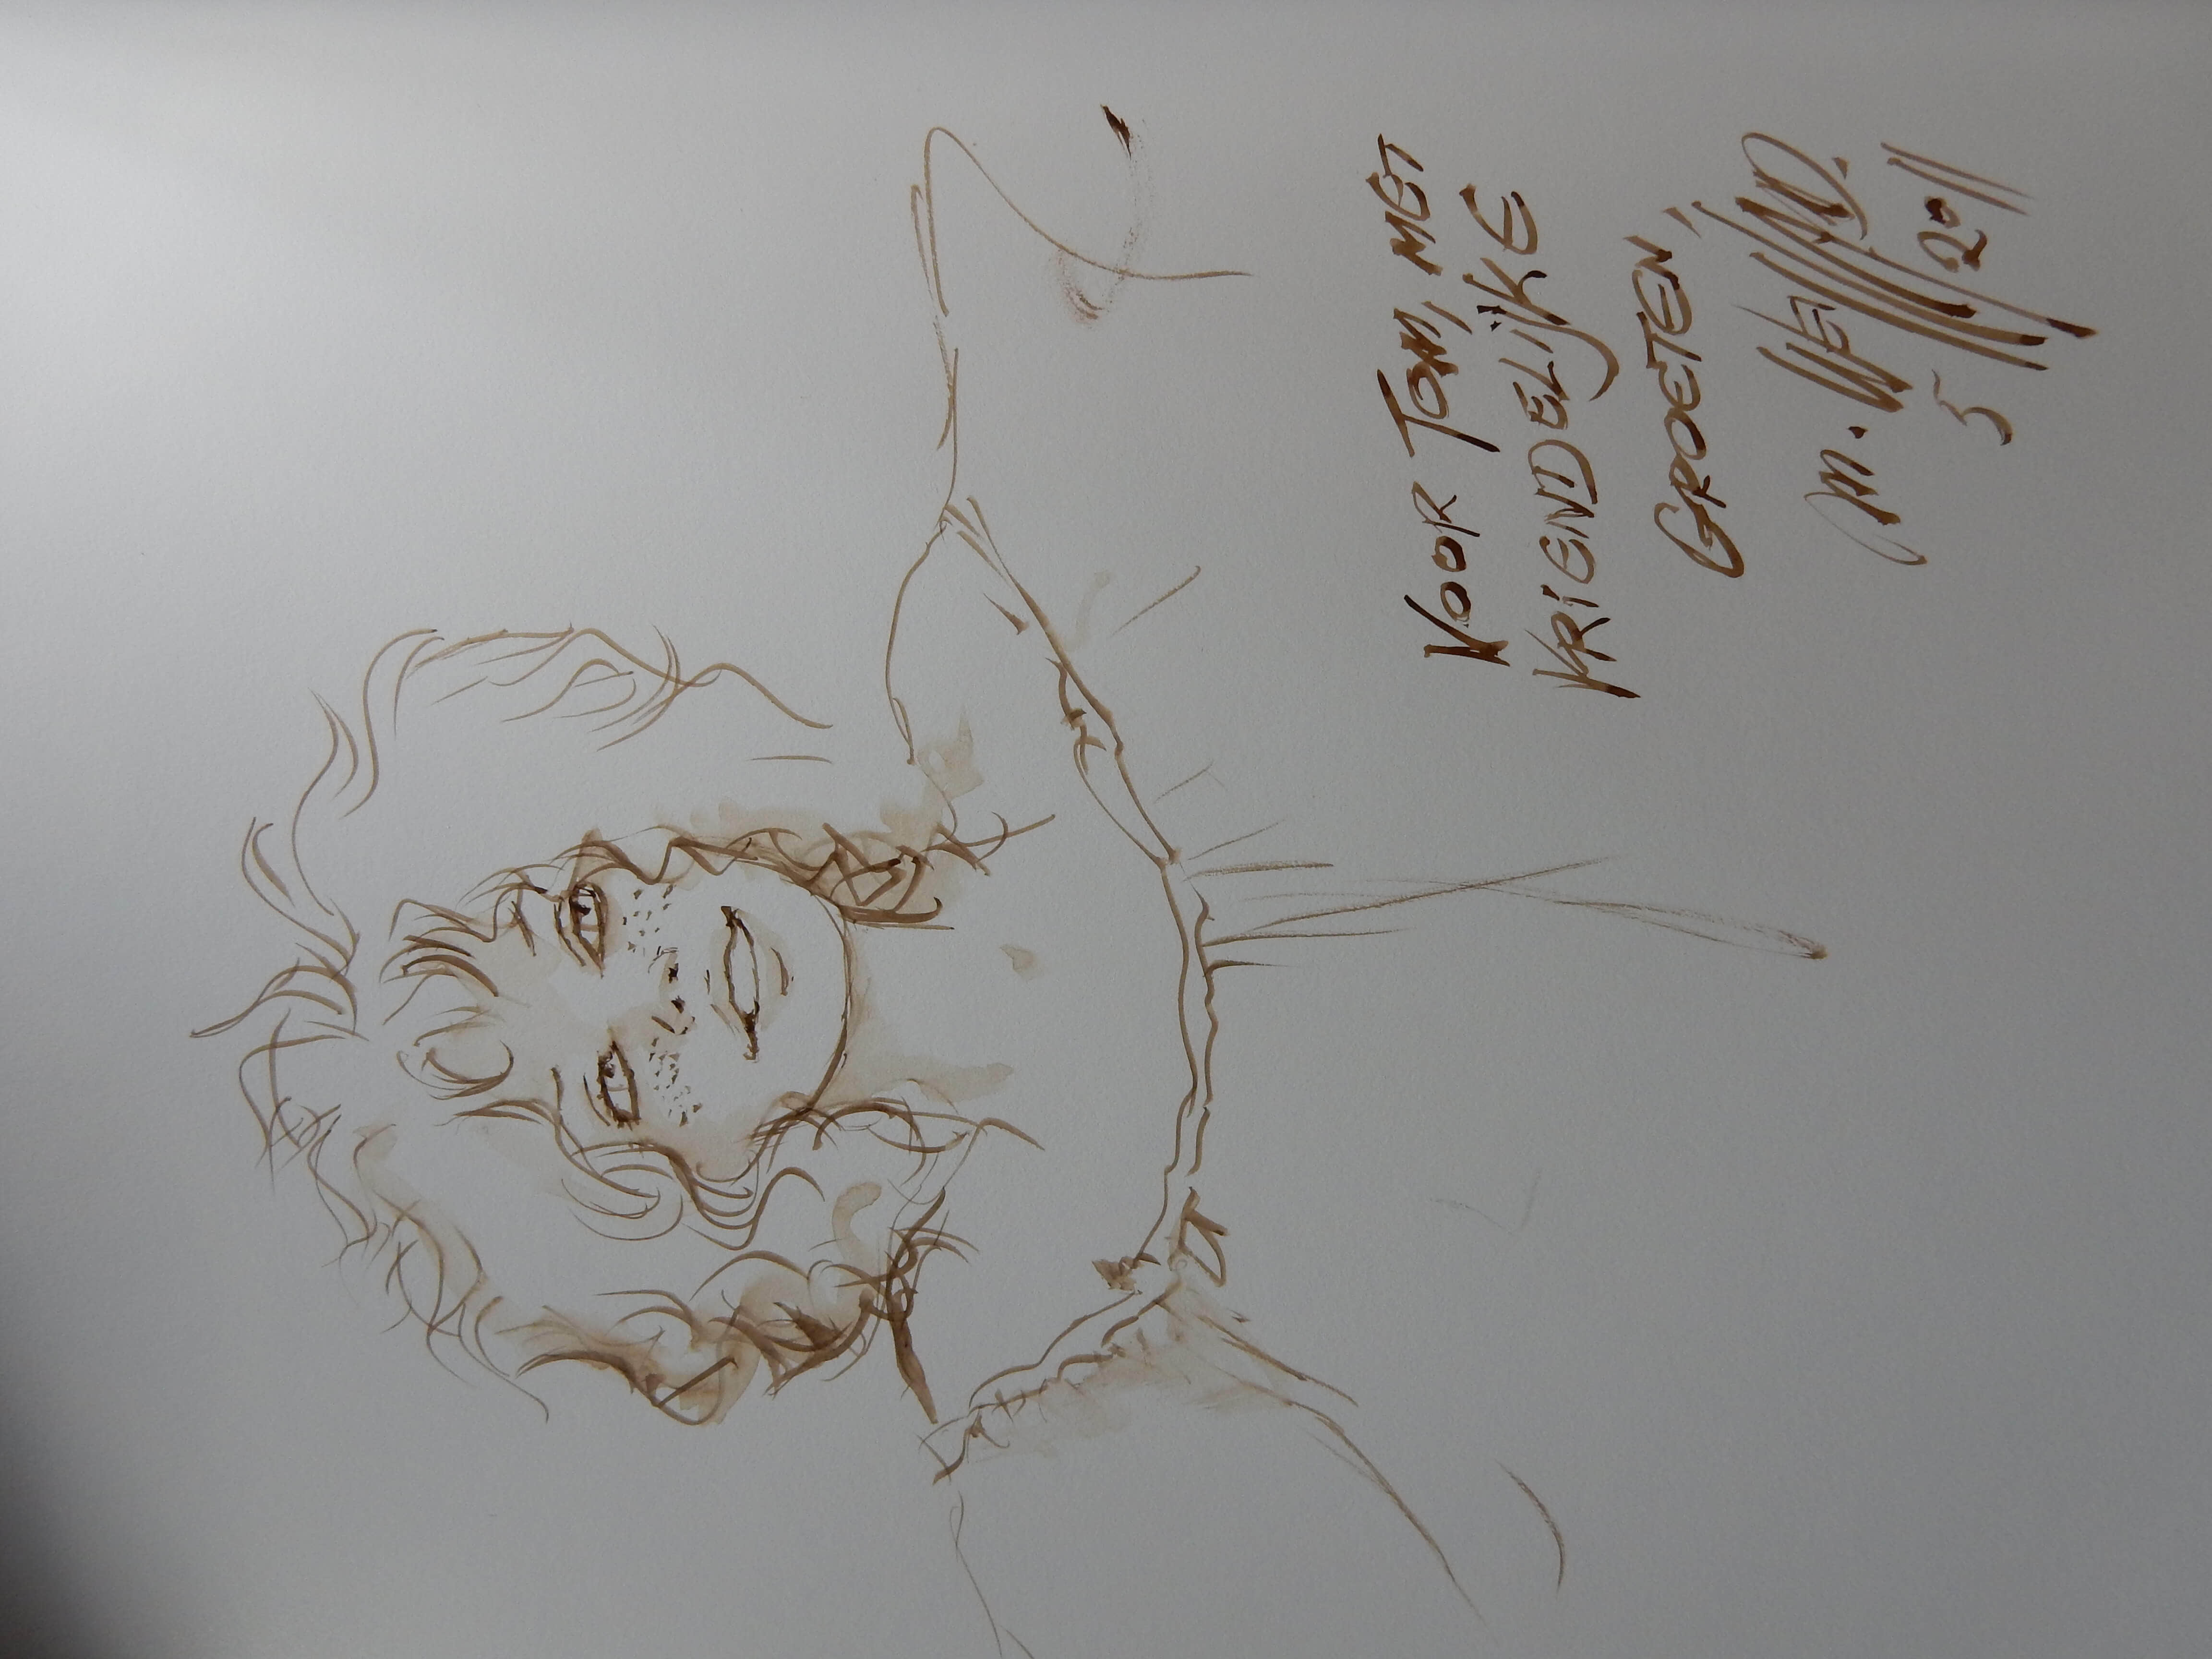 VOOR TOM, MET
VRIENDELIJKE
GROETEN,
M. WEYLAND.
5 2011